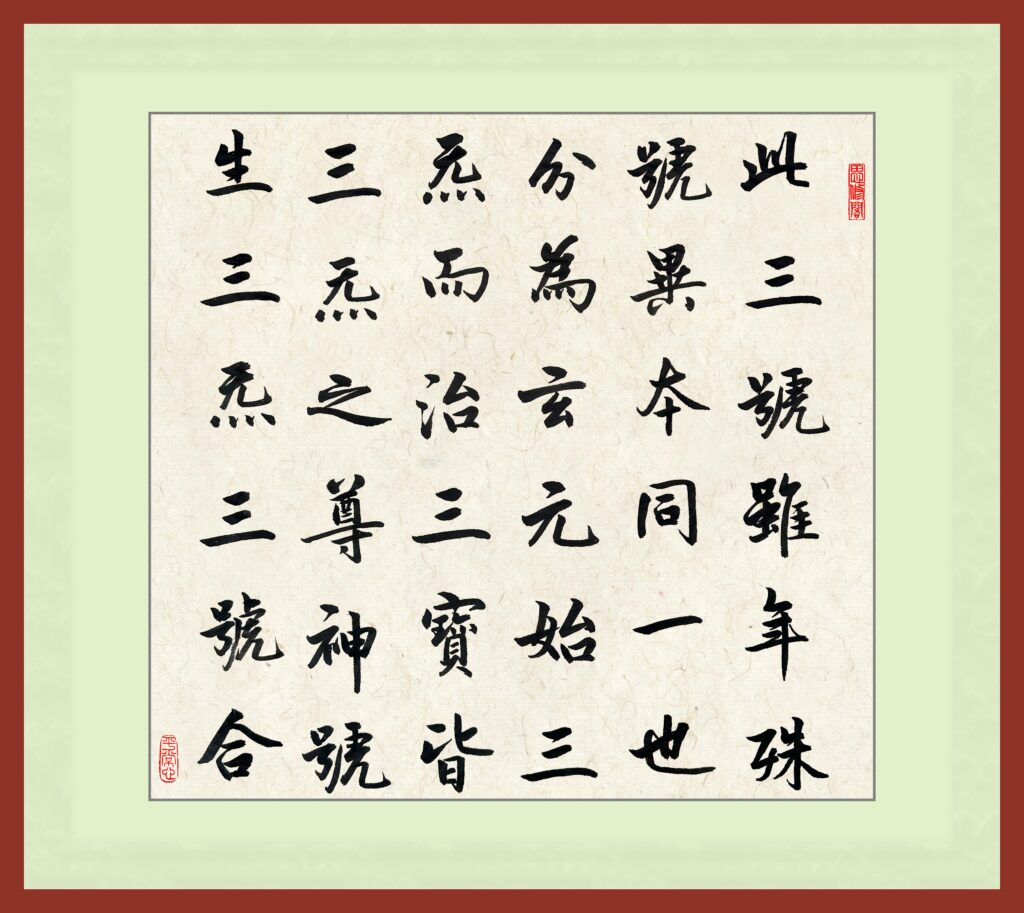 思修閣
此三號雖年殊
號異本同一也
分為玄元始三
炁而治三寶皆
三炁之尊神號
生三炁三號合
平常心